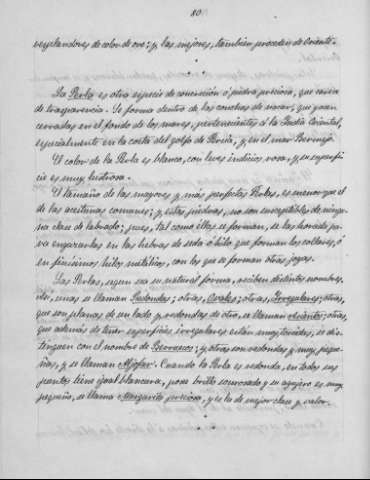 80
resplandores de color de oro; y las mejores, tambien proceden de Oriente.
La Perla es otra especie de concreción ó piedra preciosa, que carece
de trasparencia. Se forma dentro de las conchas de nacar, que yacen
cerradas en el fondo de los mares, pertenecientes á la India Oriental,
especialmente en la costa del golfo de Persia, y en el mar Bermejo.
El color de la Perla es blanco, con leves indicios rosa, y su superfi-
cie es muy lustrosa.
El tamaño de las mayores y más perfectas Perlas, es menor que el
de las aceitunas comunes; y estas piedras, no son susceptibles de ningu-
na clase de labrado; pues, tal como ellas se forman, se las horada pa-
ra engarzarlas en las hebras de seda ó hilo que forman los collares, ó
en finisimos hilos metálicos, con los que se forman otras joyas.
Las Perlas, segun sea su natural forma, reciben distintos nombres.
unas se llaman Redondas; otras, Ovales; otras, Irregulares; otras,
que son planas de un lado y redondas de otro, se llaman otras,
que además de tener superficies irregulares están muy torcidas, se dis-
tinguen con el nombre de Berruecos; y otras son redondas y muy peque-
ñas, y se llaman Aljofar. Cuando la Perla es redonda, en todas sus
partes tiene igual blancura, posee brillo sonrosado y su agujero es muy
pequeño, se llama Margarita preciosa, y es la de mejor clase y valor.